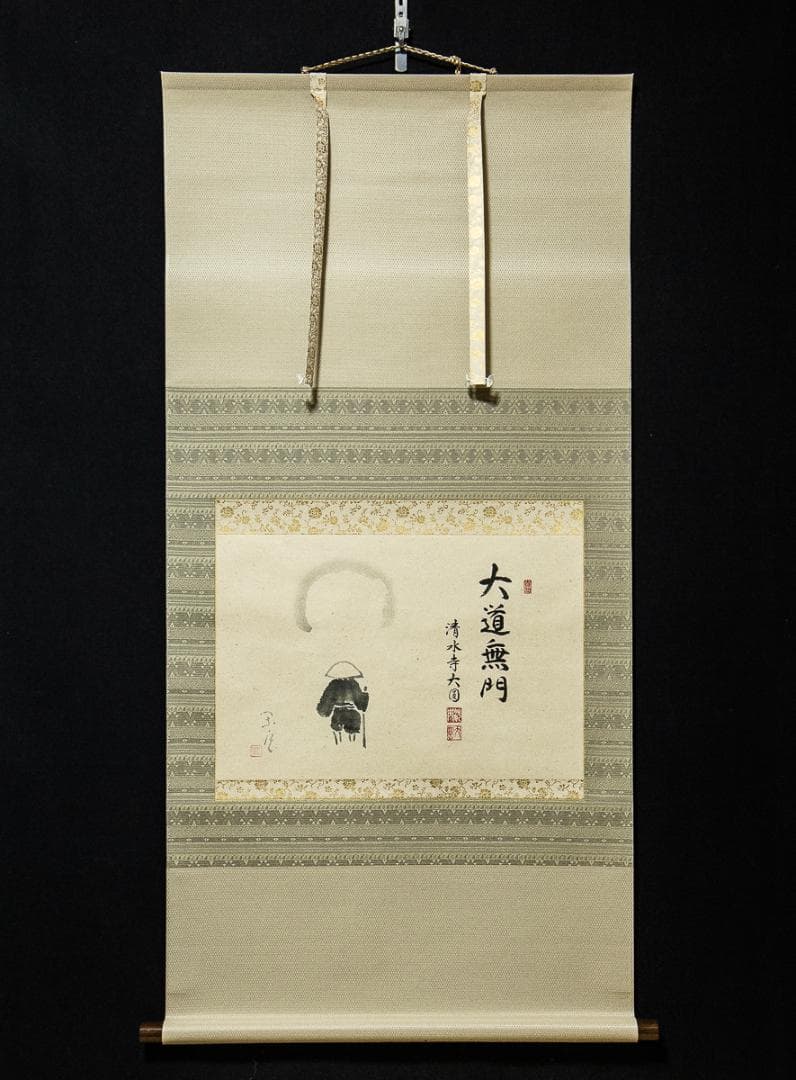 大道無門
清水寺大圓